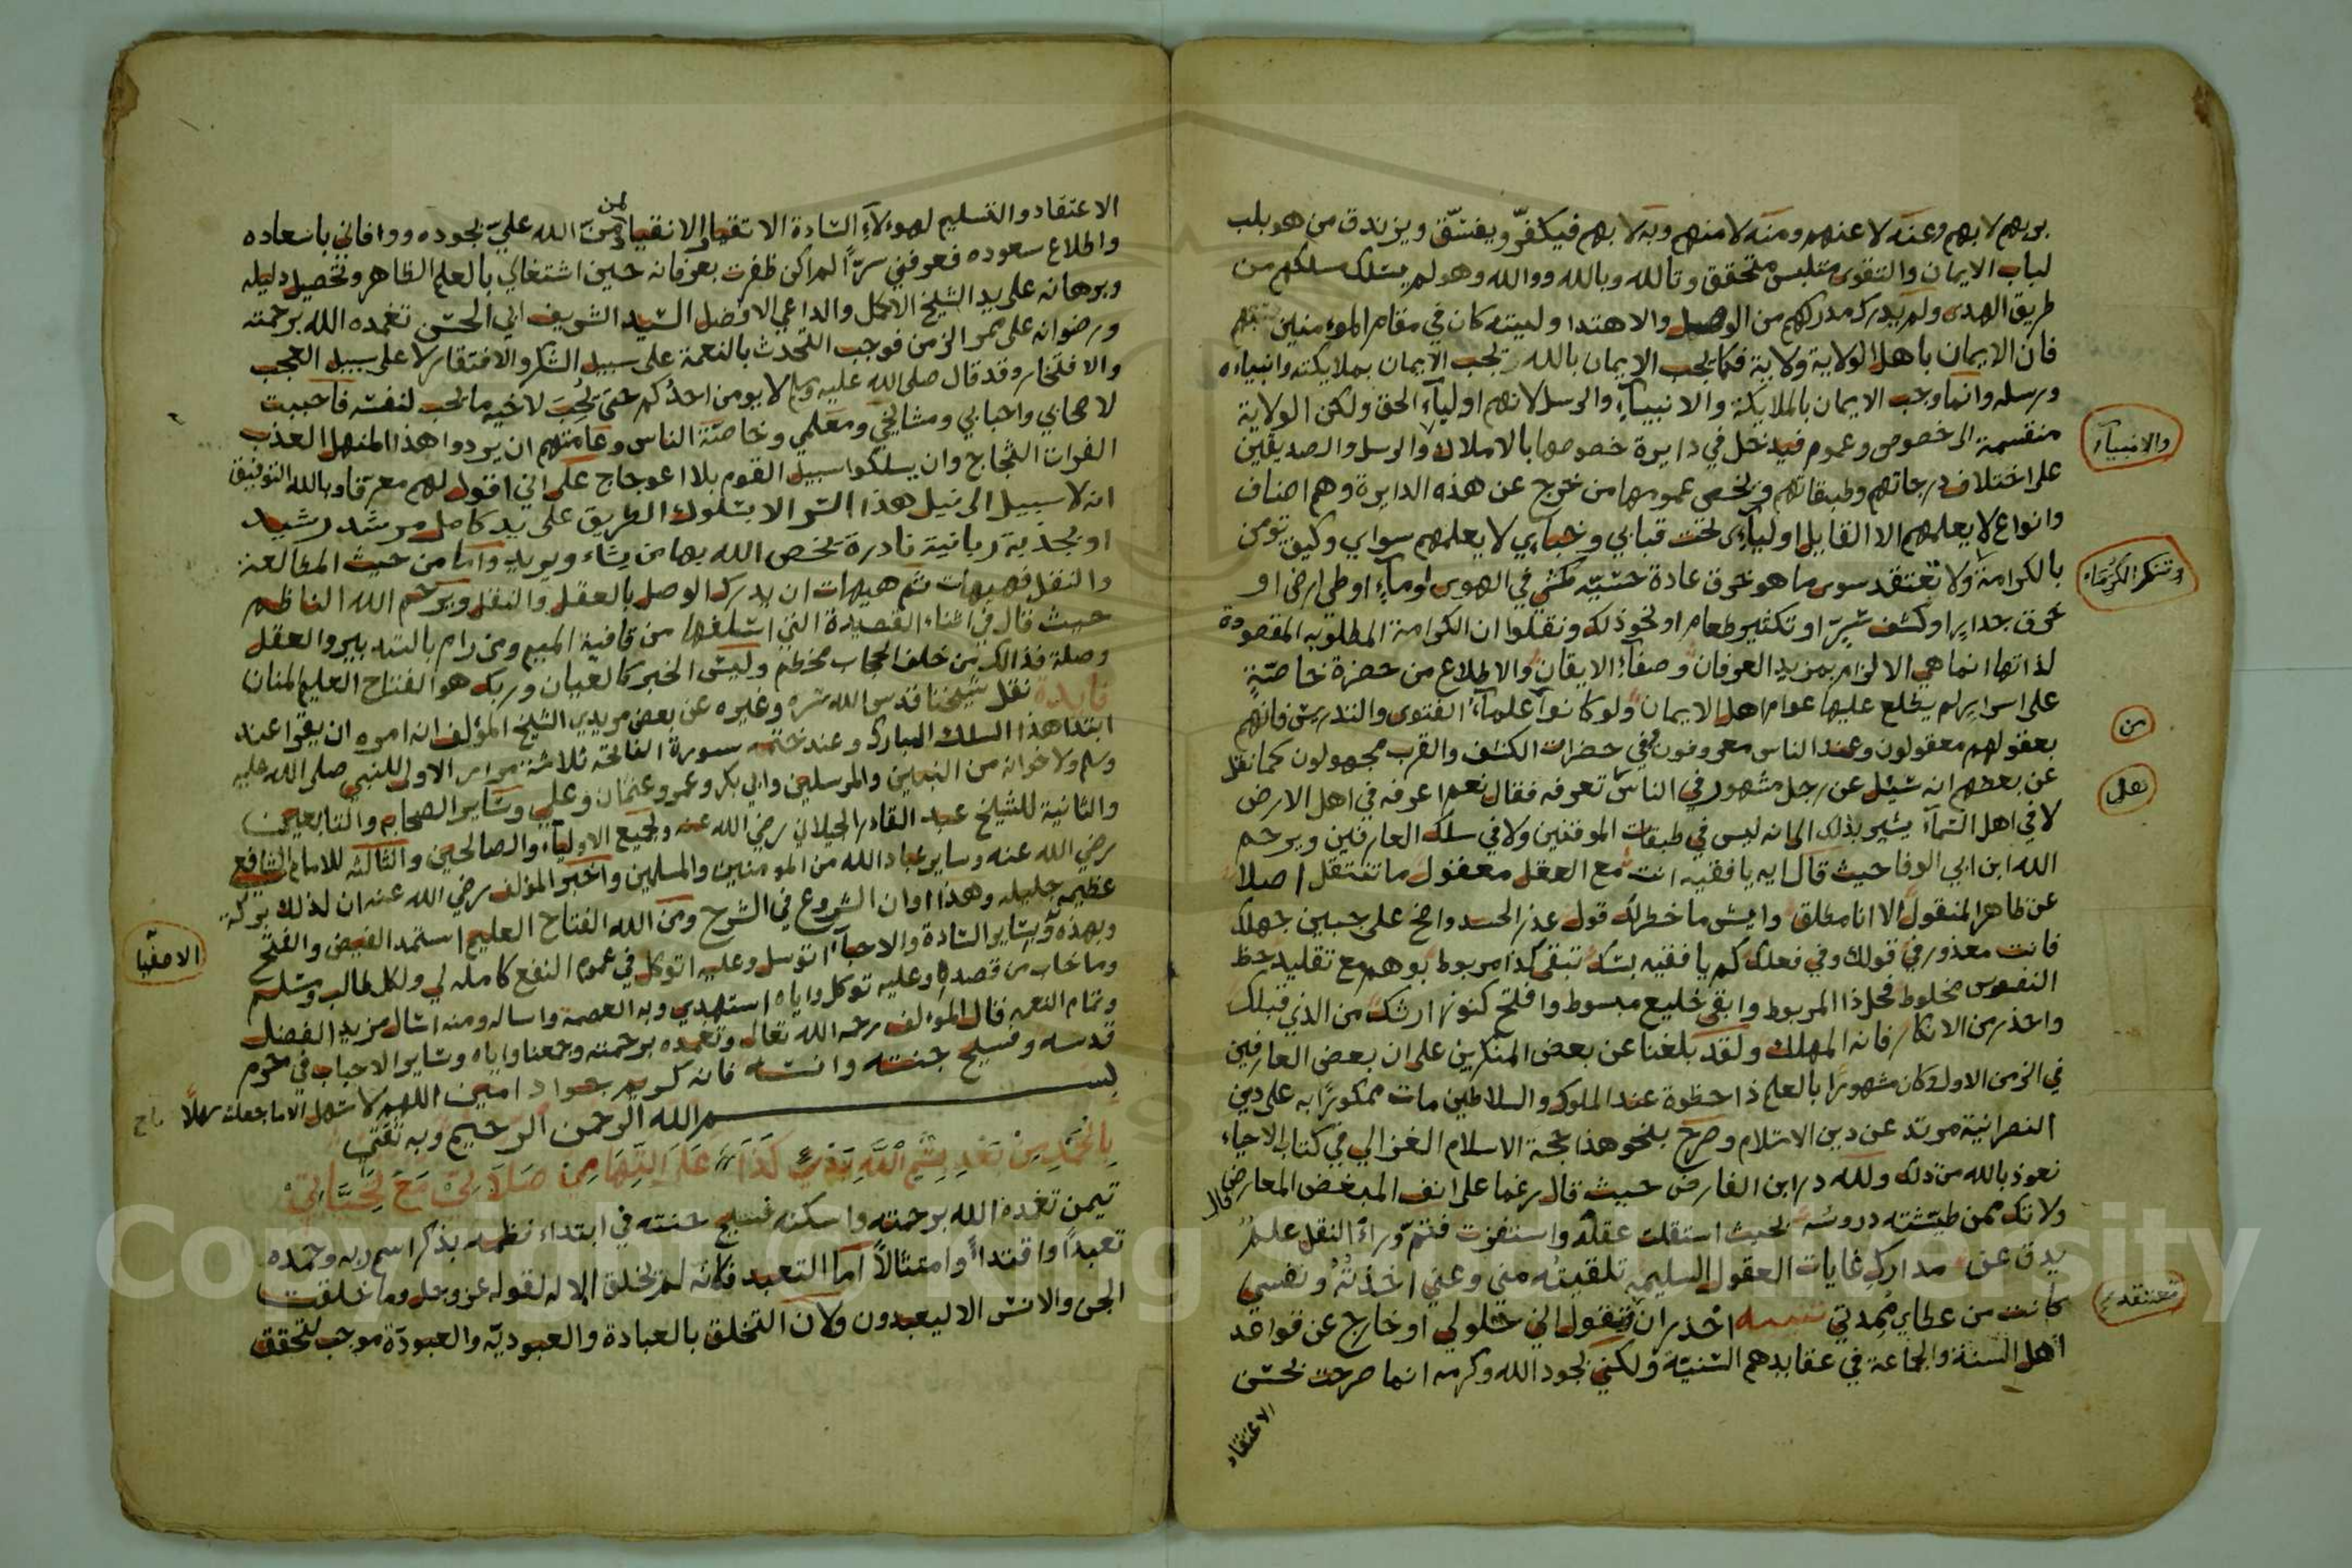 بربهم لا بهم وعنه لا عنهم ومنه لا منهم وبه لا بهم فيكفّر ويفسّق ويزندق من هو بلب
لباب الايمان والتقوى متلبس متحقق وتالله وبالله ووالله وهو لم يسلك مسلكهم من
طريق الهدى ولم يدرك مدركهم من الوصل والاهتدا وليته كان في مقام المومنين بهم
فان الايمان باهل الولاية ولاية فكما يجب الايمان بالله يجب الايمان بملايكته وانبياه
ورسله وانما وجب الايمان بالملايكة والانبيآء والرسل لانهم اوليآء الحق ولكن الولاية
منقسمة الى خصوص وعموم فيدخل في دايرة خصوصها بالاملاك والرسل والصديقين
والانبيآء
على اختلاف درجاتهم وطبقاتهم ويخص عمومها من خرج عن هذه الدايرة وهم اصناف
وانواع لا يعلمهم الا القايل اوليآءى تحت قبابي وخباءي لا يعلمهم سواي وكيف تومن
بالكرامة ولا تعتقد سوى ما هو خرق عادة حسّيّه كمشي في الهوى او مآء او طي ارض او
وتنكر الكرماء
خرق جدارٍ او كشف سِرّ او تكثير طعام او نحو ذلك ونقلوا ان الكرامة المطلوبه المقصودة
لذاتها انما هي الالزام بمزيد العرفان وصفآء الايقان والاطلاع من حضرة خاصّةٍ
على اسرار لم يطلع عليها عوام اهل الايمان ولو كانوا علمآء الفتوى والتدريس فانهم
من
بعقولهم معقولون وعند الناس معروفون وفي حضرات الكشف والقرب مجهولون كما نقل
عن بعضهم انه سُئل عن رجل مشهور في الناس تعرفه فقال نعم اعرفه في اهل الارض
على
لا في اهل السّمآء يشير بذلك الى انه ليس في طبقات الموقنين ولا في سلك العارفين ويرحم
الله ابن ابي الوفا حيث قال ايه يا فقيه انت مع العقل معقول ما تنتقل اصلا
عن ظاهر المنقول الا انا مطلق وايش ما خطر لك قول عذر الحسد واضح على جبين جهلك
فانت معذور في قولك وفي فعلك كم يا فقيه بسّك تبقى كدا مربوط بوهم مع تقليد حظ
النفوس مخلوط فحل ذا المربوط وابقى خليع مبسوط وافتح كنوز ارثك من الذي قبلك
واحذر من الانكار فانه المهلك ولقد بلغنا عن بعض المنكرين على ان بعض العارفين
في الزمن الاول وكان مشهورًا بالعلم ذا حظوة عند الملوك والسلاطين مات ممكورًا به على دين
النصرانية مرتد عن دين الاسلام وصرح بنحو هذا حجة الاسلام الغزالي في كتاب الاحياء
نعوذ بالله من ذلك ولله در ابن الفارض حيث قال رغما على انف المبغض المعارض قال
ولا تك ممن طيّشته دروسُه بحيث استقلت عقلَه واستفزت فثمّ وراء النقل علمٌ
يدق عن مدارك غايات العقول السليمة تلقيتُه مني وعني اخذتُهُ ونفسي
كانت من عطاي مُمِدتي تنبيه احذر ان تقول اني حلولي او خارج عن قواعد
تعتقد
اهل السنة والجماعة في عقايدهم السّنيّة ولكني بجود الله وكرمه انما صرحت بحسن
الاعتقاد
الاعتقاد والتسليم لهولآء السّادة الاتقيا والانقياد لمن منّ الله عليّ بجوده ووافاني باسعاده
واطلاع سعوده فعرفني سرّاً لم اكن ظفرت بعرفانه حين اشتغالي بالعلم الظاهر وتحصيل دليله
وبرهانه على يد الشيخ الاكمل والداعي الافضل السّيد الشريف ابي الحسن تغمده الله برحمته
ورضوانه على ممر الزمن فوجب التحدث بالنعمة على سبيل الشكر والافتقار لا على سبيل العجب
والافتخار وقد قال صلى الله عليه وسلم لا يومن احدُكم حتى يُحبَ لاخيه ما يحب لنفسه فاحببت
لاصحابي واحبابي ومشايخي ومعلمي وخاصّة الناس وعامتهم ان يردوا هذا المنهل العذب
الفرات الثجاج وان يسلكوا سبيل القوم بلا اعوجاج على اني اقول لهم معرفا وبالله التوفيق
انه لا سبيل الى نيل هذا السّر الا بسلوك الطريق على يد كامل مرشد رشيد
او بجذبة ربانية نادرة يخص الله بها من يشاء ويريد واما من حيث المطالعه
والنقل فهيهات ثم هيهات ان يدرك الوصل بالعقل والنقل ويرحم الله الناظم
حيث قال في اثناء القصيدة التي اسلفها من قافية الميم ومن رام بالتدبير والعقل
وصلة فذالك من خلف الحجاب مخطم وليس الخبر كالعيان وربك هو الفتاح العليم المنان
فايدة نقل شيخنا قدس الله سره وغيره عن بعض مريدي الشيخ المؤلف انه امره ان يقرا عند
ابتدا هذا السلك المبارك وعند ختمه سورة الفاتحة ثلاثة مرار الاولى للنبي صلى الله عليه
وسلم ولاخوانه من النبيين والمرسلين وابي بكر وعمر وعثمان وعلي وساير الصحابه والتابعين
والثانية للشيخ عبد القادر الجيلاني رضي الله عنه ولجميع الاوليآء والصالحين والثالثه للامام الشافعي
رضي الله عنه وساير عباد الله من المومنين والمسلمين واخبر المؤلف رضي الله عنه ان لذلك بركة
عظيمه جليله وهذا اوان الشروع في الشرح ومن الله الفتاح العليم استمد الفيض والفتح
وبهذه وبساير السّادة والاحبآء اتوسل وعليه اتوكل في عموم النفع كامله لي ولكل طالب وسلم
الاصفيا
وما خاب من قصده وعليه توكل واياه استهدي وبه العصمة واساله ومنه اسال مزيد الفضل
وتمام النعمه قال المؤلف رحمه الله تعالى وتغمده برحمته وجمعنا واياه وساير الاحباب في حرم
قدسه وفسيح جنته وانسه فانه كريم جواد امين اللهم لا سهل الا ما جعلت سهلاً
بسم الله الرحمن الرحيم وبه ثقتي
بِالحَمْدِ مِنْ بَعْدِ بِسْمِ اللَّهِ كَذَا عَلَى التِّهَامِي صَلَاتِي مَعَ تَحِيَّاتِي
تيمن تغمده الله برحمته واسكنه فسيح جنته في ابتداء نظمه بذكر اسم ربه وحمده
تعبداً واقتداءً وامتثالاً اما التعبد فلانه لم يخلق الا له لقوله عز وجل وما خلقت
الجن والانس الا ليعبدون ولان التخلق بالعبادة والعبوديّه والعبودة موجب لتحقق
Copyright © King Saud University